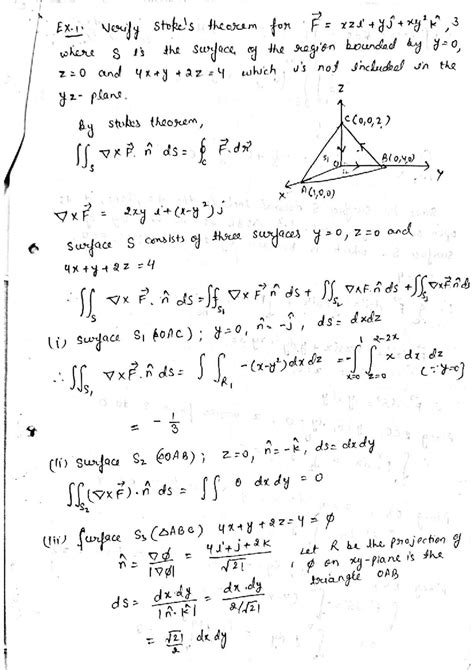 Ex.1. Verify Stoke's theorem for F⃗ = xz i + y ĵ + xy² k̂, 3
where S is the surface of the region bounded by y=0,
z=0 and 4x+y+2z=4 which is not included in the
yz-plane.
By stokes theorem,
∬_S ∇×F⃗. n̂ ds = ∮_C F⃗.dr⃗
Z
C(0,0,2)
S₁
O
B(0,4,0)
Y
X
A(1,0,0)
∇×F⃗ = 2xy i + (x-y²) j
Surface S consists of three surfaces y=0, z=0 and
4x+y+2z=4
∴ ∬_S ∇×F⃗. n̂ ds = ∬_S₁ ∇×F⃗. n̂ ds + ∬_S₂ ∇×F. n̂ ds + ∬_S₃ ∇×F⃗. n̂ ds
(i) Surface S₁ (OAC); y=0, n̂=-ĵ, ds= dxdz
∴ ∬_S₁ ∇×F⃗. n̂ ds = ∫∫_R₁ -(x-y²) dx dz = -∫_{x=0}^{1} ∫_{z=0}^{2-2x} x dx dz (∵ y=0)
= -1/3
(ii) Surface S₂ (OAB); z=0, n̂=-k̂, ds= dxdy
∬_S₂ (∇×F⃗). n̂ ds = ∬ 0 dxdy = 0
(iii) Surface S₃ (△ABC) 4x+y+2z=4=φ
n̂ = ∇φ/|∇φ| = 4i+j+2k/√21
Let R be the projection of
φ on xy-plane is the
triangle OAB
ds = dx.dy/|n̂.k̂| = dx.dy/2/√21
= √21/2 dx dy